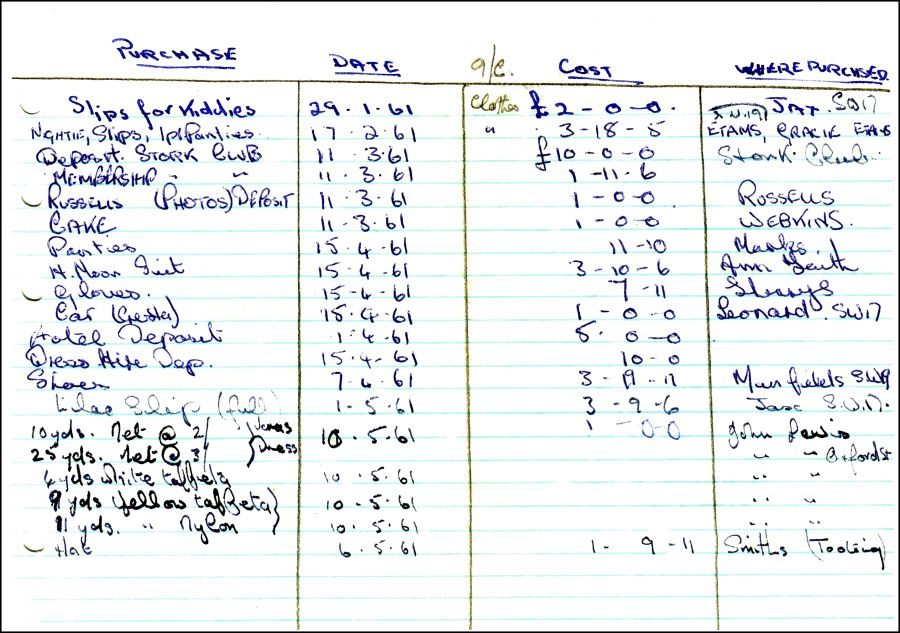 PURCHASE DATE a/c. COST WHERE PURCHASED
Slips for Kiddies 29.1.61 Clothes £2-0-0. JAX. SW17
NIGHTIE, Slips, 1pr Panties. 17.2.61 " 3-18-5 ETAMS, ETAMS
Deposit. STORK CLUB 11.3.61 £10-0-0 Stork Club.
MEMBERSHIP " " 11.3.61 1-11-6
RUSSELLS (PHOTOS) DEPOSIT 11.3.61 1-0-0 RUSSELLS
CAKE 11-3.61 1-0-0 WEBKINS.
Panties 15.4.61 11-10 Marks.
H. Moon Suit 15.4.61 3-10-6
Gloves. 15-4-61 7-11
Car 15.4.61 1-0-0 Leonard. SW17
Hotel Deposit 1.4.61 5.0-0
Dress Hire Dep. 15.4.61 10-0
Shoes 7.4.61 3-19-11 Munfields SW9
Lilac Slip (full) 1-5.61 3-9-6 Jax S.W.17.
10 yds. Net @ 2/ 10.5.61 1-0-0 John Lewis
25 yds. Net @ 3/ Dress " " Oxford St
4 yds white taffeta 10.5.61 " "
9 yds Yellow taffeta 10.5.61 " "
11 yds. " Nylon 10.5.61 " "
Hat 6.5.61 1-9-11 Smiths (Tooting)